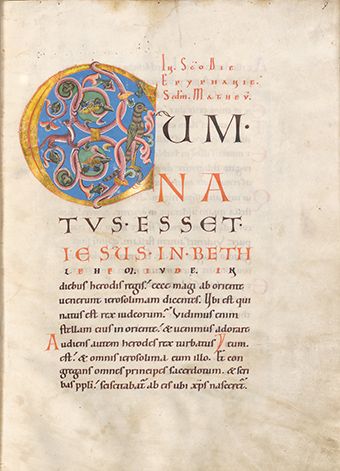 In Scō Die
Epyphanie.
Scdm. Mathev̄.
CUM.
NA
TUS. ESSET.
IESUS. IN. BETH
LEHEM. IUDE. IN
diebus herodis regis. ecce magi ab oriente
uenerunt ierosolimam dicentes. Ubi est qui
natus est rex iudeorum? Vidimus enim
stellam eius in oriente. & uenimus adorare
Audiens autem herodes rex turbatus eum.
est. & omnis ierosolima cum illo. Et con
gregans omnes principes sacerdotum. & scri
bas ppli. sciscitabat̄ ab eis ubi xp̄s nasceret̄.